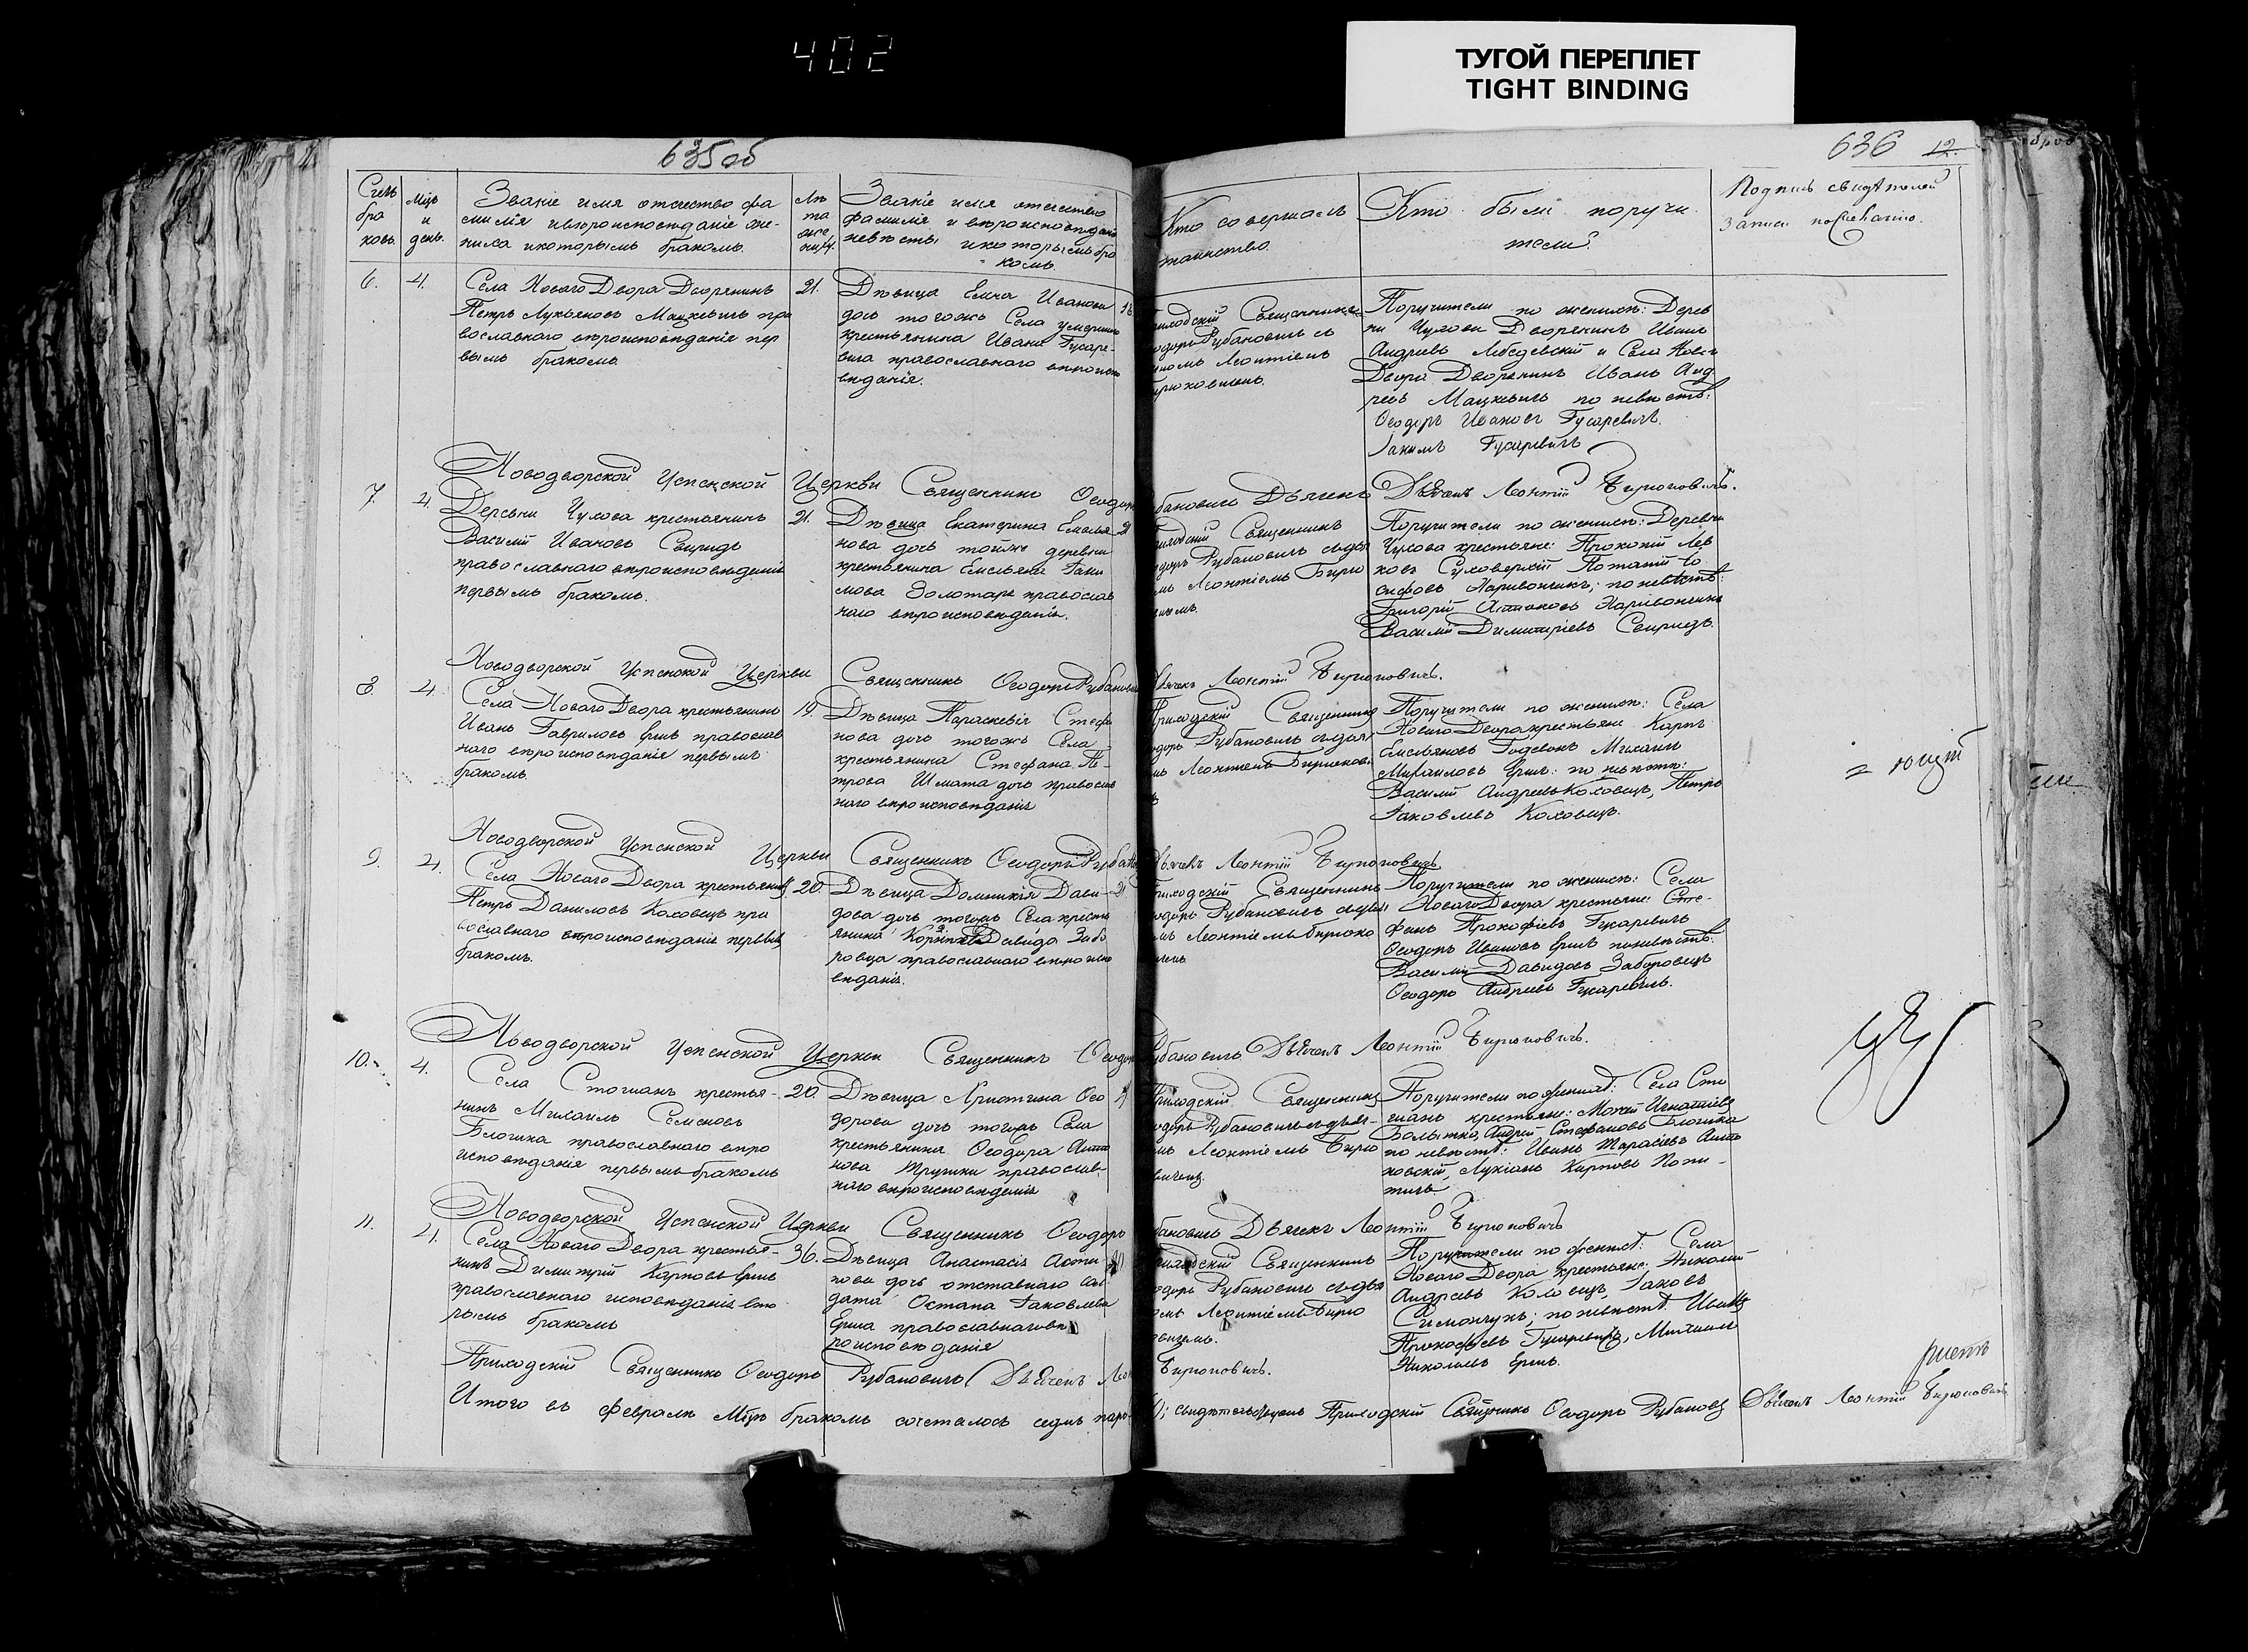 402
ТУГОЙ ПЕРЕПЛЕТ
TIGHT BINDING
635об
636 12.
Счетъ
бра
ковъ.
Мцъ
и
день.
Званіе имя отчество фа
милія и вѣроисповѣданіе же-
ниха и которымъ бракомъ.
Лѣ
та
жених.
Званіе имя отчество
фамилія и вѣроисповѣданіе
невѣсты и которымъ бра
комъ.
Кто совершалъ
таинство.
Кто были поручи
тели.
Подпись свидѣтелей
записи по желанію.
6. 4.
Села Новаго Двора Дворянинъ
Петръ Лукьяновъ Мацкевичъ пра
вославнаго вѣроисповѣданіе пер
вымъ бракомъ.
21.
Дѣвица Елена Иванова
дочь тогожъ Села умершаго
крестьянина Ивана Гусаре-
вича православнаго вѣроиспо
вѣданія.
18
Священникъ
Рубановичъ съ
Леонтіемъ
Поручители по женихѣ: Дерев
ни Чухова Дворянинъ Иванъ
Андреевъ Лебедевскій и Села Новаго
Двора Дворянинъ Иванъ Анд
реевъ Мацкевичъ по невѣстѣ:
Ѳеодоръ Ивановъ Гусаревичъ.
Іакимъ Гусаревичъ
Новодворской Успенской Церкви Священникъ Ѳеодоръ
Рубановичъ Дьячекъ Леонтій Бирюковичъ.
7. 4.
Деревни Чухова крестьянинъ
Василій Ивановъ Свиридъ
православнаго вѣроисповѣданія
первымъ бракомъ.
21.
Дѣвица Екатерина Емелья
нова дочь тойже деревни
крестьянина Емельяна Іаки
мова Золотаря православ
наго вѣроисповѣданія.
21
Священникъ
Рубановичъ съ дья
Леонтіемъ Бирю
Поручители по женихѣ: Деревни
Чухова крестьяне: Прокопій Лев
ковъ Суховерхій Потапій Іо
сифовъ Харивончикъ; по невѣстѣ:
Григорій Харивончикъ
Василій Димитріевъ Свиридъ.
Новодворской Успенской Церкви Священникъ Ѳеодоръ Рубановичъ
Дьячекъ Леонтій Бирюковичъ.
8. 4.
Села Новаго Двора крестьянинъ
Иванъ Гавриловъ Ершъ православ
наго вѣроисповѣданіе первымъ
бракомъ.
19.
Дѣвица Параскевія Стефа
нова дочь тогожъ Села
крестьянина Стефана Пе-
трова Шмата дочь православ
наго вѣроисповѣданія
Приходскій Священникъ
Рубановичъ съ дья
Леонтіемъ Бирюкови
Поручители по женихѣ: Села
Новаго Двора крестьяне Карпъ
Емельяновъ Михаилъ
Михаиловъ Ершъ: по невѣстѣ:
Василій Андреевъ Коховецъ, Петръ
Іаковлевъ Коховецъ.
Новодворской Успенской Церкви Священникъ Ѳеодоръ Рубановичъ
Дьячекъ Леонтій Бирюковичъ.
9. 4.
Села Новаго Двора крестьянинъ
Петръ Даниловъ Коховецъ пра
вославнаго вѣроисповѣданіе первымъ
бракомъ.
20.
Дѣвица Домникія Дави-
дова дочь тогожъ Села кресть
янина Давида Забо
ровца православнаго вѣроиспо
вѣданія.
21
Приходскій Священникъ
Рубановичъ съ дья
Леонтіемъ Бирюко
Поручители по женихѣ: Села
Новаго Двора крестьяне: Сте-
фанъ Прокофіевъ Гусаревичъ
Ѳеодоръ Ивановъ Ершъ по невѣстѣ:
Василій Давидовъ Заборовецъ
Ѳеодоръ Андреевъ Гусаревичъ.
Новодворской Успенской Церкви Священникъ Ѳеодоръ
Рубановичъ Дьячекъ Леонтій Бирюковичъ.
10. 4.
Села Стошанъ крестья-
нинъ Михаилъ Семеновъ
Блошка православнаго вѣро
исповѣданія первымъ бракомъ
20.
Дѣвица Христина Ѳео
дорова дочь тогожъ Села
крестьянина Ѳеодора Анто
нова Трушки православ-
наго вѣроисповѣданія
Приходскій Священникъ
Рубановичъ съ дья-
Леонтіемъ Бирю
Поручители по женихѣ: Села Сто
шанъ крестьяне: Мокей Игнатіевъ
Андрей Стефановъ Блошка
по невѣстѣ: Иванъ Тарасіевъ Анто
новскій, Лукіанъ Карповъ Попи-
тичъ
Новодворской Успенской Церкви Священникъ Ѳеодоръ
Рубановичъ Дьячекъ Леонтій Бирюковичъ
11. 4.
Села Новаго Двора крестья-
нинъ Димитрій Карповъ Ершъ
православнаго исповѣданія вто
рымъ бракомъ
36.
Дѣвица Анастасія Оста
пова дочь отставнаго сол
дата Остапа Іаковлева
Ерша православнаго вѣ
роисповѣданія
Приходскій Священникъ
Рубановичъ съ дья
Леонтіемъ Бирю
Поручители по женихѣ: Села
Новаго Двора крестьяне: Николай
Андреевъ Коховецъ, Іаковъ
Симончукъ; по невѣстѣ: Иванъ
Прокофьевъ Гусаревичъ, Михаилъ
Николаевъ Ершъ.
Приходскій Священникъ Ѳеодоръ Рубановичъ Дьячекъ Леонтій Бирюковичъ.
Итого въ Февралѣ Мцѣ бракомъ сочеталось седмь паръ
Приходскій Священникъ Ѳеодоръ Рубановичъ Дьячекъ Леонтій Бирюковичъ